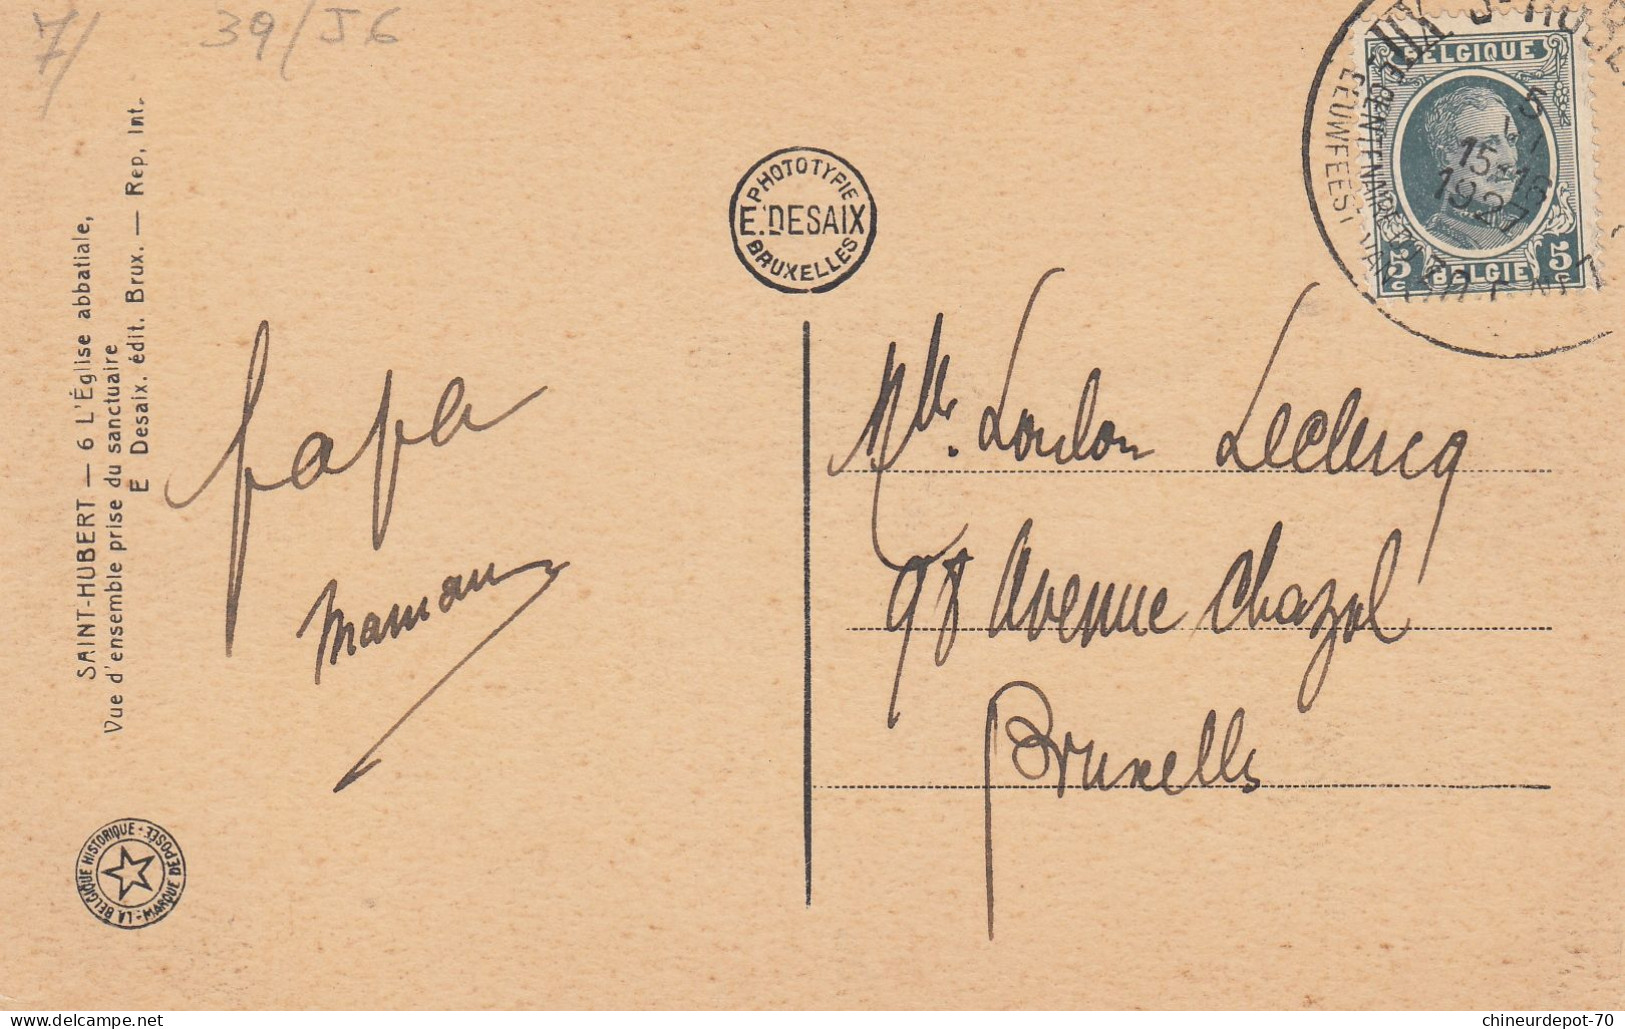 7/ 39/J6
SAINT-HUBERT — 6 L'Église abbatiale,
Vue d'ensemble prise du sanctuaire
E Desaix, édit. Brux. — Rep, Int.
PHOTOTYPIE
E. DESAIX
BRUXELLES
BELGIQUE
5c BELGIE 5c
XIIe CENTENAIRE
EEUWFEEST VAN
5
15-16
1927
papa
maman
Mlle. Loulou Leclercq
98 Avenue Chazal
Bruxelles
LA BELGIQUE HISTORIQUE - MARQUE DÉPOSÉE -
chineurdepot-70